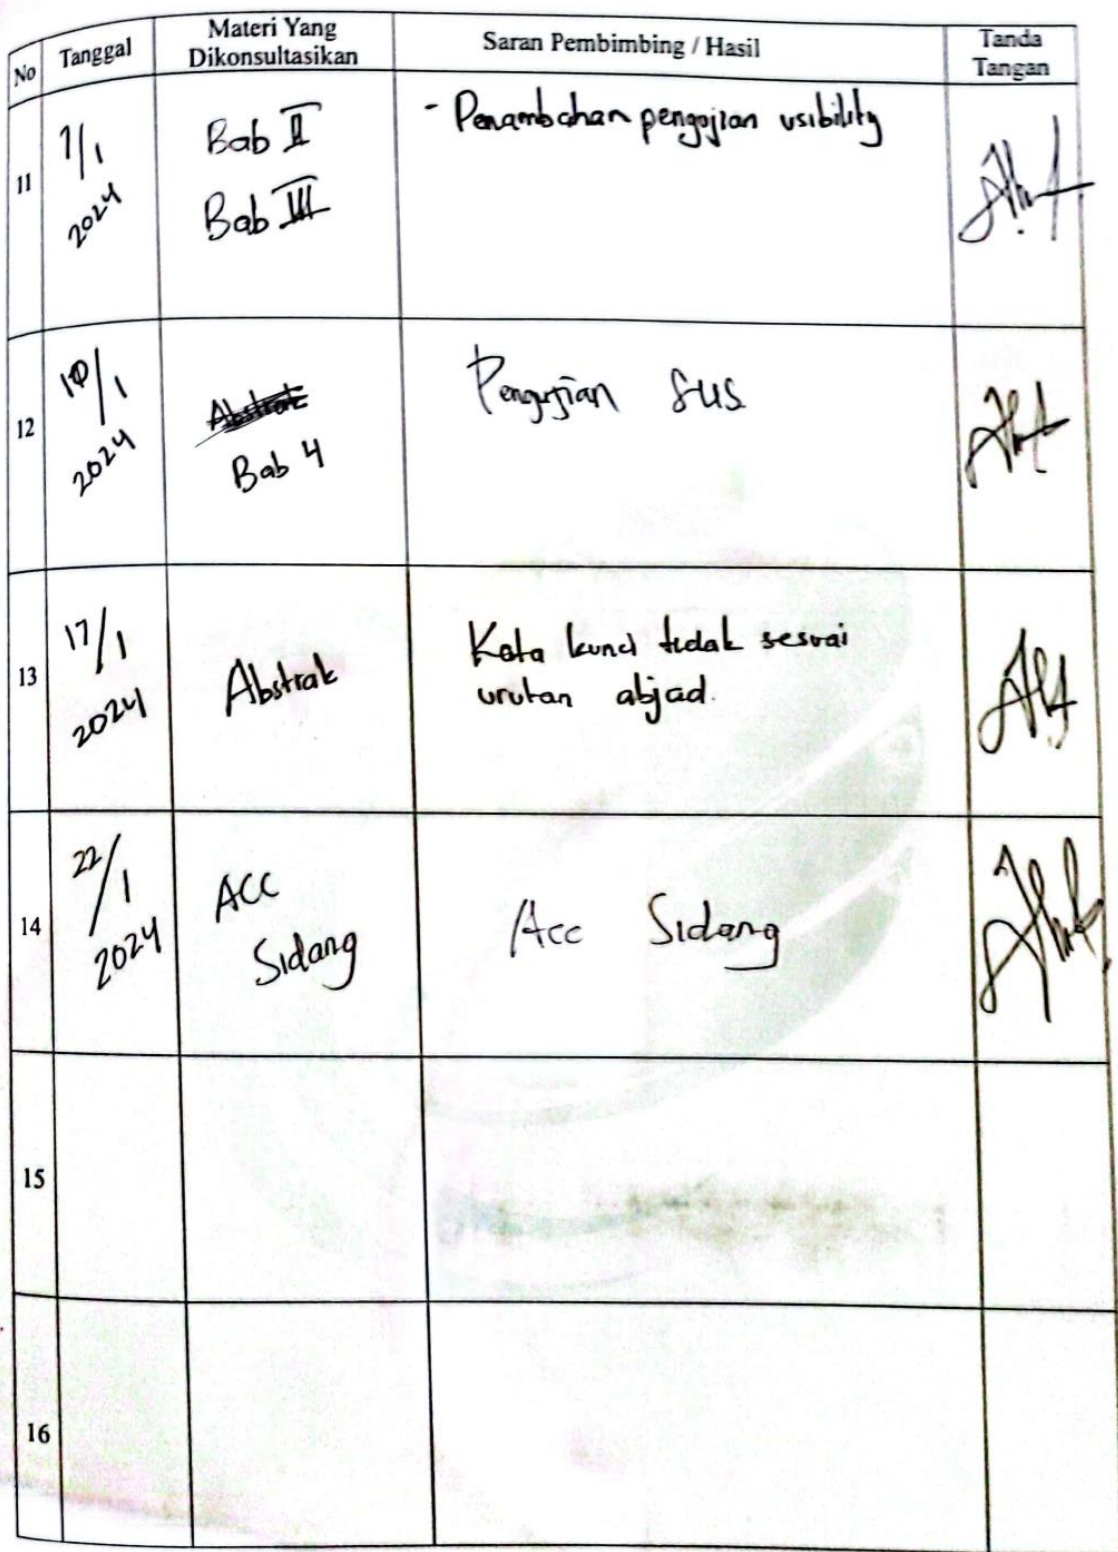 No Tanggal Materi Yang Dikonsultasikan Saran Pembimbing / Hasil Tanda Tangan
11 7/1 2024 Bab II - Penambahan pengujian usibility
Bab III
12 10/1 2024 Abstrak Pengujian SUS
Bab 4
13 17/1 2024 Abstrak Kata kunci tidak sesuai
urutan abjad.
14 22/1 2024 ACC Sidang Acc Sidang
15
16